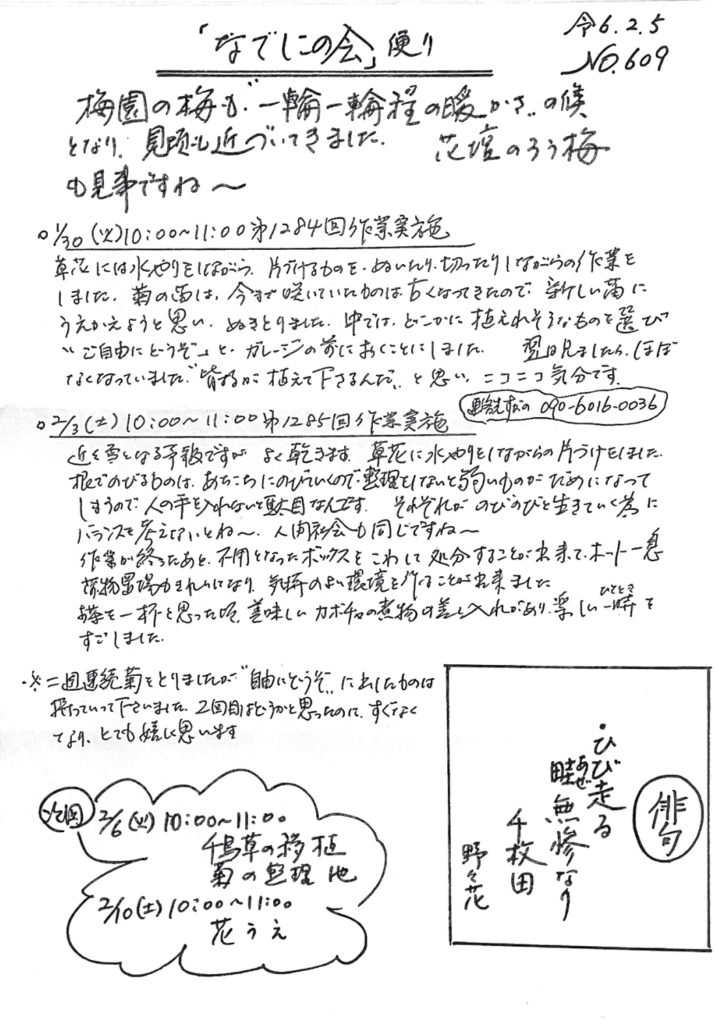 「なでしこの会」便り
令6.2.5
NO.609
梅園の梅も“一輪一輪程の暖かさ”の候
となり、見頃も近づいてきました。 花壇のろう梅
も見事ですね〜
○1/30(火)10:00〜11:00 第1284回作業実施
草花には水やりをしながら、片づけるものを、ぬいたり、切ったりしながらの作業を
しました。菊の苗は、今まで咲いていたものは古くなってきたので、新しい苗に
うえかえようと思い、ぬきとりました。中では、どこかに植えれそうなものを選び
“ご自由にどうぞ”と、ガレージの前におくことにしました。 翌日見ましたら、ほぼ
なくなっていました。“皆様が植えて下さるんだ”と思い、ニコニコ気分です。
連絡先 090-6016-0036
○2/3(土)10:00〜11:00 第1285回作業実施
近く雪となる予報ですが よく乾きます。草花に水やりをしながらの片づけをしました。
根でのびるものは、あちこちにのびていくので、整理をしないと弱いものがだめになって
しまうので、人の手を入れないと駄目なんです。 それぞれが のびのびと生きていく為に
バランスを考えないとね〜。人間社会も同じですね〜
作業が終ったあと、不用となったボックスを こわして 処分することが出来て、ホット一息
荷物置場もきれいになり、気持のよい環境を作ることが出来ました
お茶を一杯と思った頃、美味しいカボチャの煮物の差し入れがあり、楽しい一時(ひととき)を
すごしました。
※二回連続菊をとりましたが“自由にどうぞ”に出したものは
持っていって下さいました。2回目はどうかと思ったのに、すぐなく
なり、とても嬉しく思います
次回
2/6(火)10:00〜11:00
千鳥草の移植
菊の整理 他
2/10(土)10:00〜11:00
花うえ
俳句
・ひび走る
畦(あぜ)無惨なり
千枚田
野々花